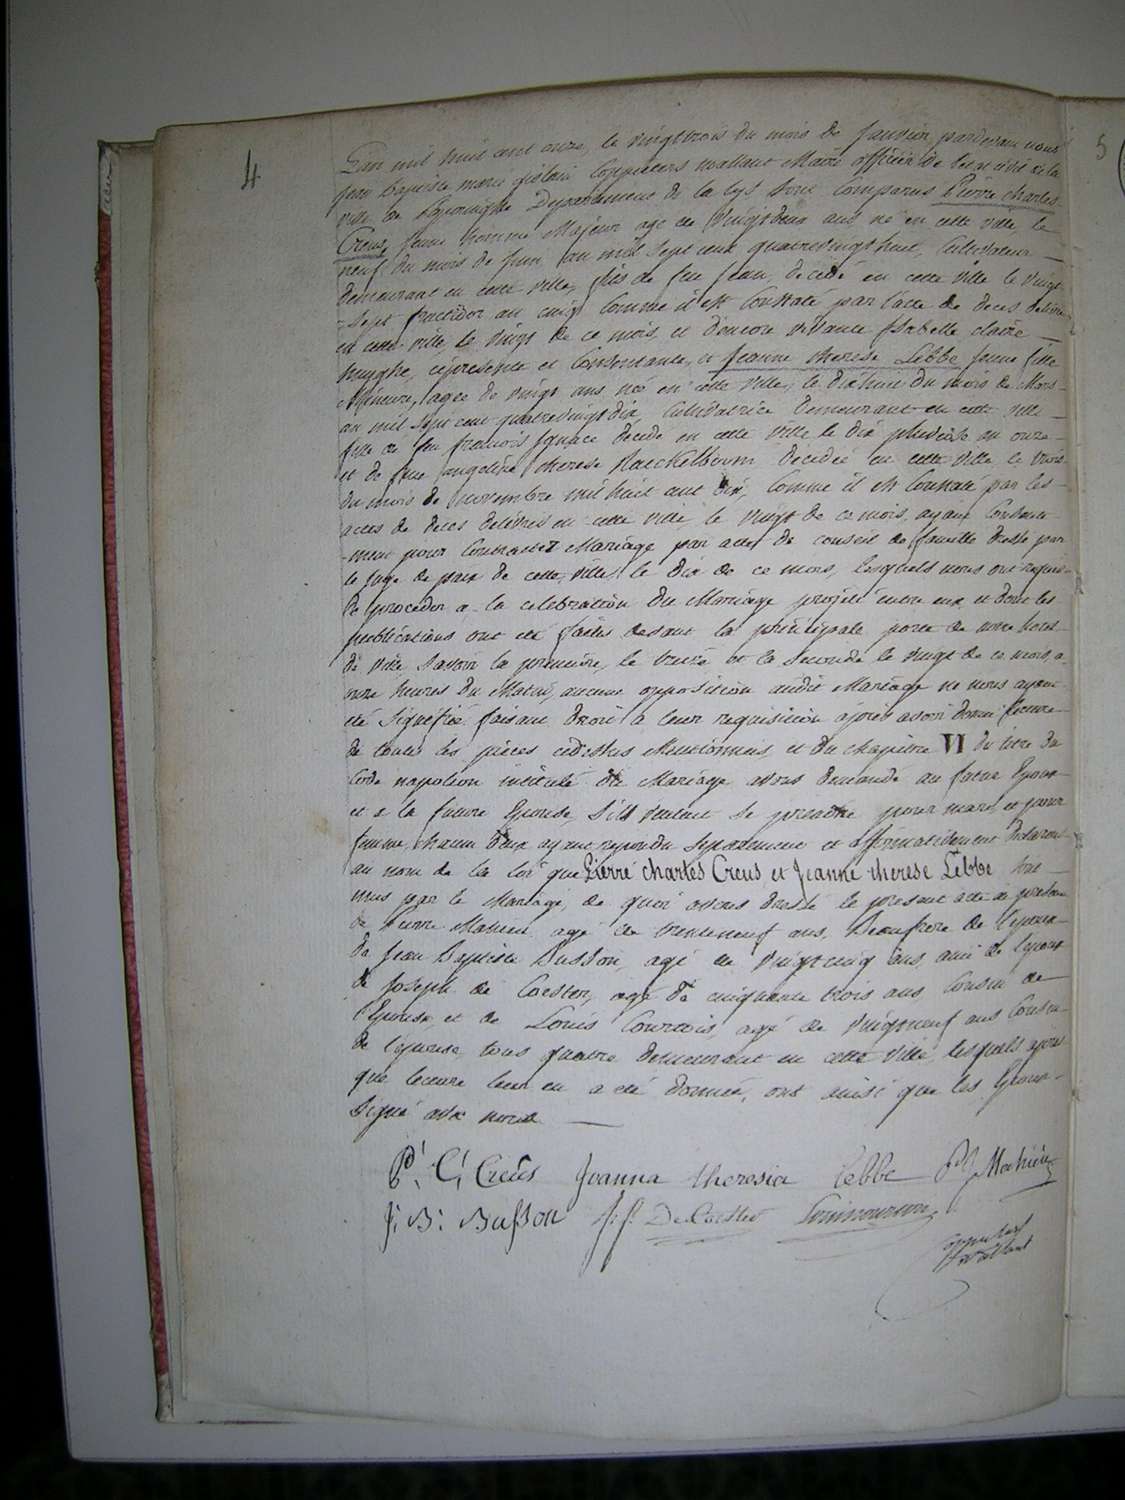 4
5
L'an mil huit cent onze, le vingt trois du mois de Janvier, pardevant nous
Jean Baptiste marie gislain Coppieters wallant Maire officier de l'etat civil de la
ville de Departement de la Lys Sont Comparus Pierre charles
Creus, jeune homme Majeur age de vingt deux ans né en cette ville, le
neuf du mois de Juin an mil sept cent quatrevingt huit, Cultivateur
demeurant en cette ville, fils de feu Jean, decédé en cette ville le vingt
sept fructidor an cinq Comme il est Constaté par l'acte de deces delivré
en cette ville, le vingt de ce mois, et d'encore vivante Isabelle claire
huyghe, ci presente et Consentante, et Jeanne therese Lebbe jeune fille
Mineure, agée de vingt ans née en cette ville, le dixhuit du mois de Mars
an mil sept cent quatrevingt dix, Cultivatrice demeurant en cette ville
fille de feu francois Ignace decedé en cette ville le dix pluviose an onze
et de feue angeline therese Raeckelboom decedée en cette ville le trois
du mois de novembre mil huit cent dix, Comme il est Constaté par les
actes de deces delivrés en cette ville le vingt de ce mois, ayant Consente
-ment pour Contracter Mariage par acte de conseil de famille dressé par
le Juge de paix de cette ville, le dix de ce mois, lesquels nous ont requis
de proceder a la celebration du Mariage projeté entre eux et dont les
publications ont été faites devant la principale porte de notre hotel
de ville savoir la premiere, le treize et la seconde le vingt de ce mois, a
onze heures du Matin, aucune opposition audit Mariage ne nous ayant
été signifiée faisant droit a leur requisition apres avoir donné lecture
de toutes les pieces cidessus Mentionnées, et du chapitre VI du titre du
Code napoleon intitulé du Mariage avons demandé au futur Epoux
et a la future Epouse, s'ils veulent se prendre pour mari et pour
femme, chacun d'eux ayant repondu separement et affirmativement declarons
au nom de la loi que Pierre charles Creus et Jeanne therese Lebbe sont
unis par le Mariage, de quoi avons dressé le present acte en presence
de Pierre Mahieu agé de trenteneuf ans, Beaufrere de l'epoux
de Jean Baptiste Busson, agé de vingtcinq ans, ami de l'epoux
de Joseph de Coester, agé de cinquante trois ans Cousin de
l'Epouse, et de Louis Courtois, agé de vingtneuf ans Cousin
de l'epouse, tous quatre demeurant en cette ville, lesquels apres
que lecture leur en a été donnée, ont ainsi que les Epoux
signé avec nous
P: C: Creus Joanna theresia Lebbe Pr Mahieu
J: B: Busson J: f: De Coester
Coppieters
wallant